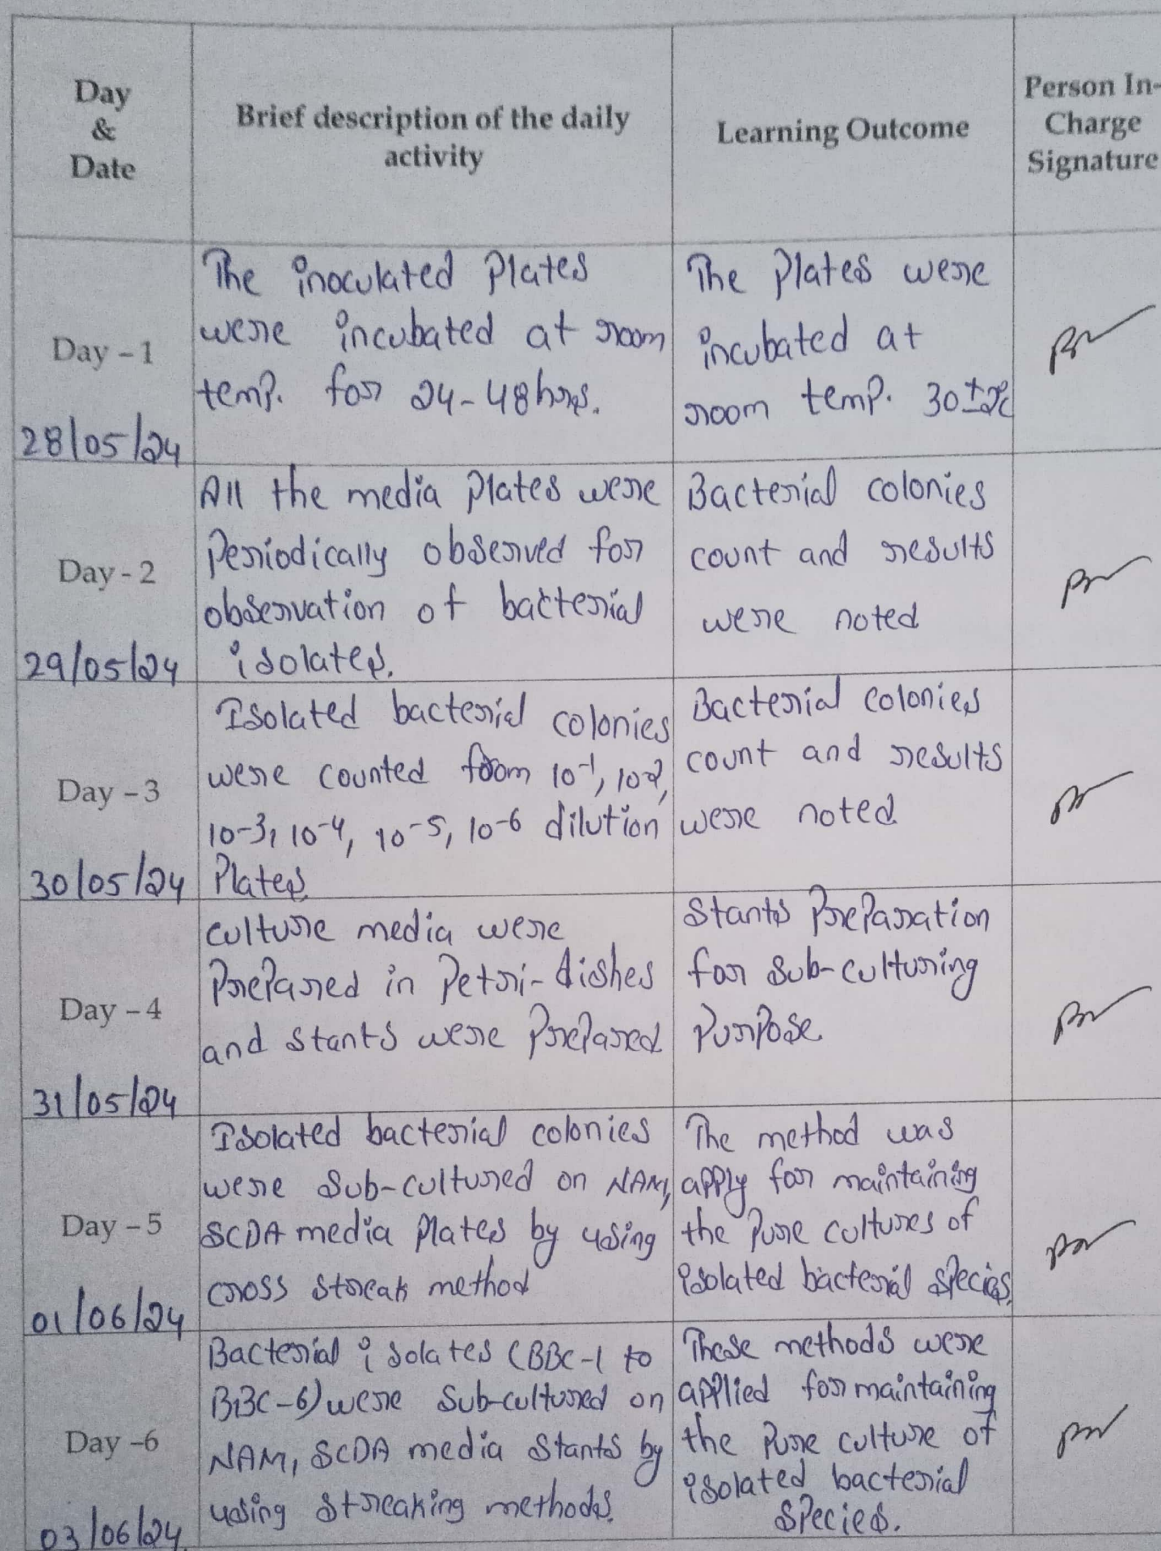 Day
&
Date
Brief description of the daily
activity
Learning Outcome
Person In-
Charge
Signature
Day - 1
28/05/24
The inoculated Plates
were incubated at room
temp. for 24-48 hrs.
The Plates were
incubated at
room temp. 30±2c
Day - 2
29/05/24
All the media Plates were
Periodically observed for
observation of bacterial
isolates.
Bacterial colonies
count and results
were noted
Day - 3
30/05/24
Isolated bacterial colonies
were counted from 10-1, 10-2,
10-3, 10-4, 10-5, 10-6 dilution
Plates
Bacterial colonies
count and results
were noted
Day - 4
31/05/24
culture media were
Prepared in Petri-dishes
and stants were Prepared
Stants Preparation
for Sub-culturing
Purpose.
Day - 5
01/06/24
Isolated bacterial colonies
were Sub-cultured on NAM,
SCDA media Plates by using
cross streak method
The method was
apply for maintaining
the Pure cultures of
isolated bacterial species.
Day -6
03/06/24
Bacterial isolates (BBC-1 to
BBC-6) were Sub-cultured on
NAM, SCDA media Stants by
using streaking methods.
These methods were
applied for maintaining
the Pure culture of
isolated bacterial
species.